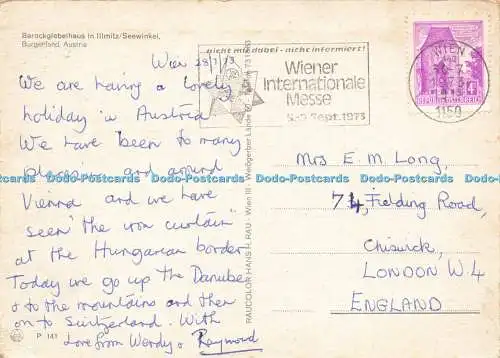 Barockgiebelhaus in Illmitz/Seewinkel,
Burgenland, Austria
Wien 28/7/73
We are having a lovely
holiday in Austria
We have been to many
places in and around
Vienna and we have
seen "the iron curtain"
at the Hungarian border
Today we go up the Danube
& to the mountains and then
on to Switzerland. With
Love from Wendy & Raymond
P 141
RAUCOLOR HANS H. RAU - Wien III - Weißgerber Lände
nicht mit dabei - nicht informiert!
Wiener
Internationale
Messe
Sept. 1973
WIEN
1150
REPUBLIK ÖSTERREICH
Mrs E. M. Long,
74, Fielding Road,
Chiswick,
LONDON W.4
ENGLAND
Dodo-Postcards Dodo-Postcards Dodo-Postcards Dodo-Postcards Dodo-Postcards